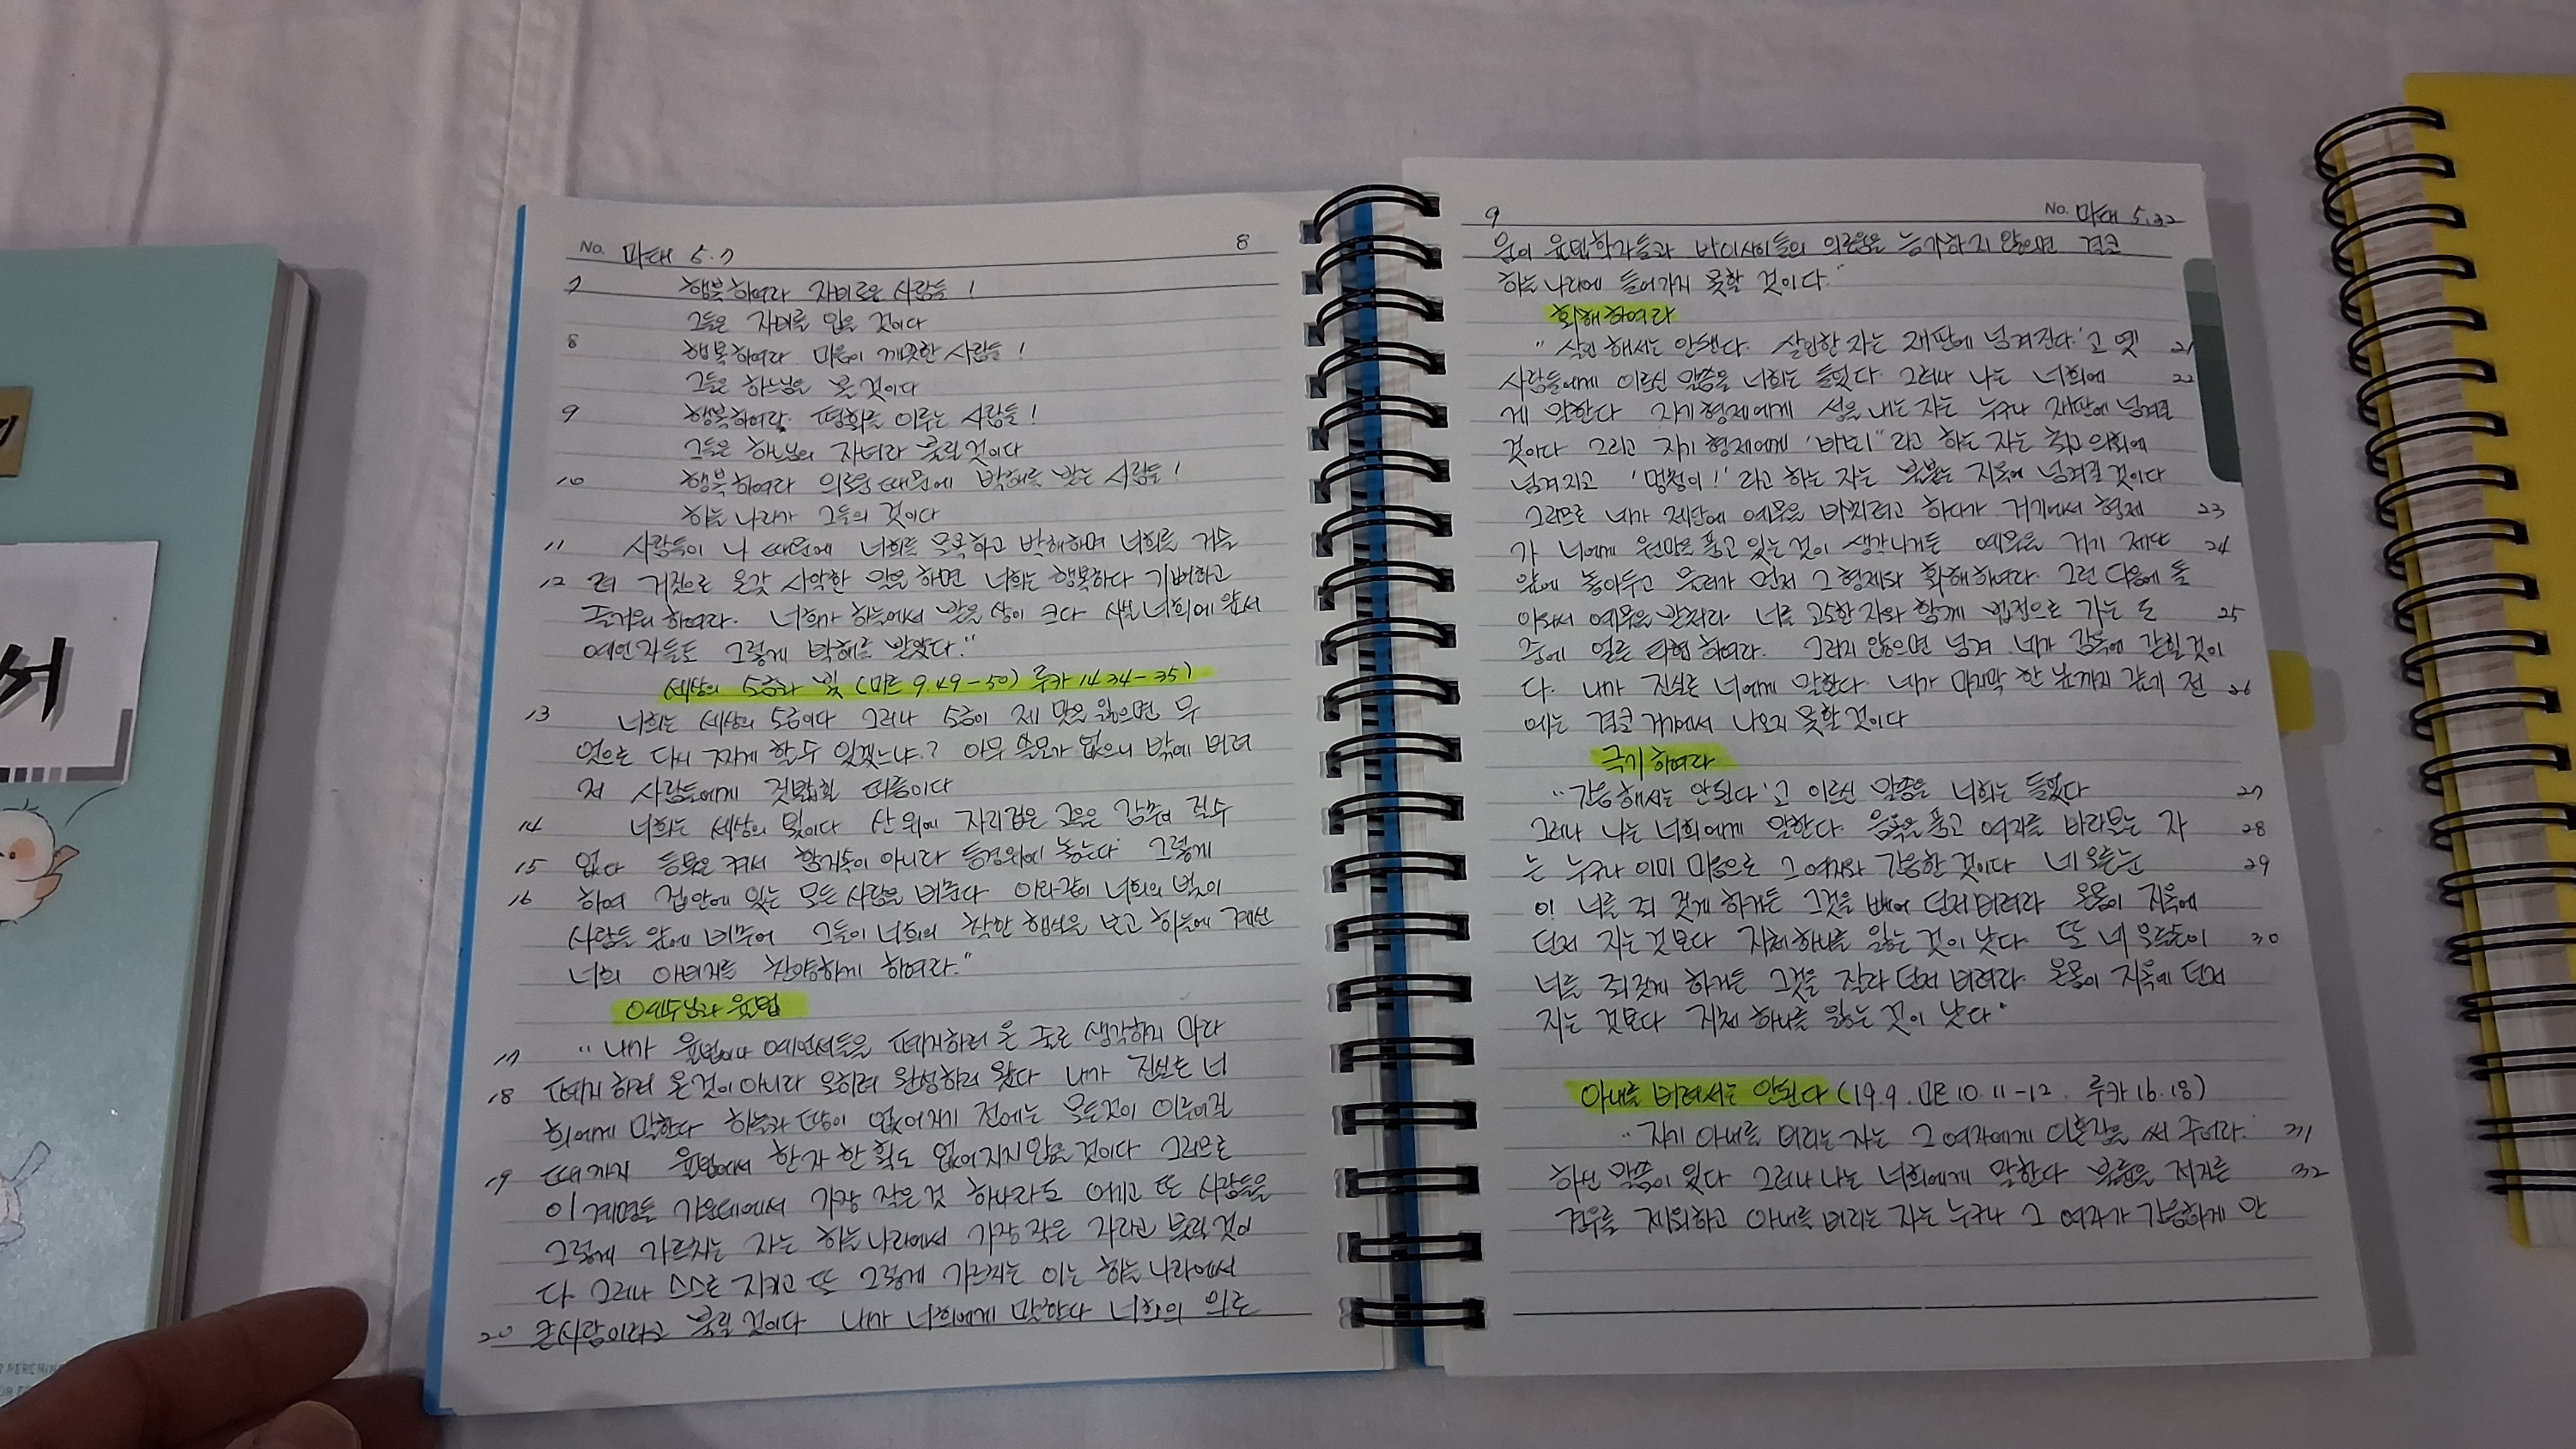 No. 마태 5.7
8
7 행복하여라 자비로운 사람들!
그들은 자비를 입을 것이다
8 행복하여라 마음이 깨끗한 사람들!
그들은 하느님을 볼 것이다
9 행복하여라 평화를 이루는 사람들!
그들은 하느님의 자녀라 불릴 것이다
10 행복하여라 의로움 때문에 박해를 받는 사람들!
하늘 나라가 그들의 것이다
11 사람들이 나 때문에 너희를 모욕하고 박해하며 너희를 거슬
12 려 거짓으로 온갖 사악한 말을 하면 너희는 행복하다 기뻐하고
즐거워 하여라. 너희가 하늘에서 받을 상이 크다 사실 너희에 앞서
예언자들도 그렇게 박해를 받았다."
세상의 소금과 빛 (마르 9.49-50) 루카 14.34-35)
13 너희는 세상의 소금이다 그러나 소금이 제 맛을 잃으면 무
엇으로 다시 짜게 할 수 있겠느냐? 아무 쓸모가 없으니 밖에 버려
져 사람들에게 짓밟힐 따름이다
14 너희는 세상의 빛이다 산 위에 자리잡은 고을은 감추어 질수
15 없다 등불은 켜서 함지속이 아니라 등경위에 놓는다 그렇게
16 하여 집안에 있는 모든 사람을 비춘다 이와같이 너희의 빛이
사람들 앞에 비추어 그들이 너희의 착한 행실을 보고 하늘에 계신
너희 아버지를 찬양하게 하여라."
예수님과 율법
17 "내가 율법이나 예언서들을 폐지하러 온 줄로 생각하지 마라
18 폐지 하러 온것이 아니라 오히려 완성하러 왔다 내가 진실로 너
희에게 말한다 하늘과 땅이 없어지기 전에는 모든것이 이루어질
19 때까지 율법에서 한 자 한 획도 없어지지 않을 것이다 그러므로
이 계명들 가운데에서 가장 작은 것 하나라도 어기고 또 사람들을
그렇게 가르치는 자는 하늘나라에서 가장 작은 자라고 불릴 것이
다 그러나 스스로 지키고 또 그렇게 가르치는 이는 하늘 나라에서
20 큰사람이라고 불릴 것이다 내가 너희에게 말한다 너희의 의로
9
No. 마태 5.32
움이 율법학자들과 바리사이들의 의로움을 능가하지 않으면 결코
하늘 나라에 들어가지 못할 것이다."
화해하여라
"살인해서는 안된다. 살인한 자는 재판에 넘겨진다'고 옛 21
사람들에게 이르신 말씀을 너희는 들었다 그러나 나는 너희에 22
게 말한다 자기 형제에게 성을 내는 자는 누구나 재판에 넘겨질
것이다 그리고 자기 형제에게 '바보!"라고 하는 자는 최고 의회에
넘겨지고 '멍청이!'라고 하는 자는 불붙는 지옥에 넘겨질 것이다
그러므로 네가 제단에 예물을 바치려고 하다가 거기에서 형제 23
가 너에게 원망을 품고 있는 것이 생각나거든 예물을 거기 제단 24
앞에 놓아두고 물러가 먼저 그 형제와 화해하여라. 그런 다음에 돌
아와서 예물을 바쳐라 너를 고소한 자와 함께 법정으로 가는 도 25
중에 얼른 타협 하여라. 그러지 않으면 넘겨 네가 감옥에 갇힐 것이
다. 내가 진실로 너에게 말한다. 네가 마지막 한 닢까지 갚기 전 26
에는 결코 거기에서 나오지 못할 것이다
극기 하여라
"간음해서는 안된다'고 이르신 말씀을 너희는 들었다 27
그러나 나는 너희에게 말한다. 음욕을 품고 여자를 바라보는 자 28
는 누구나 이미 마음으로 그 여자와 간음한 것이다 네 오른눈 29
이 너를 죄 짓게 하거든 그것을 빼어 던져 버려라 온몸이 지옥에
던져 지는 것보다 지체 하나를 잃는 것이 낫다. 또 네 오른손이 30
너를 죄짓게 하거든 그것을 잘라 던져 버려라. 온몸이 지옥에 던져
지는 것보다 지체 하나를 잃는 것이 낫다"
아내를 버려서는 안된다 (19.9. 마르 10. 11-12. 루카 16.18)
"자기 아내를 버리는 자는 그 여자에게 이혼장을 써 주어라. 31
하신 말씀이 있다 그러나 나는 너희에게 말한다 불륜을 저지른 32
경우를 제외하고 아내를 버리는 자는 누구나 그 여자가 간음하게 만